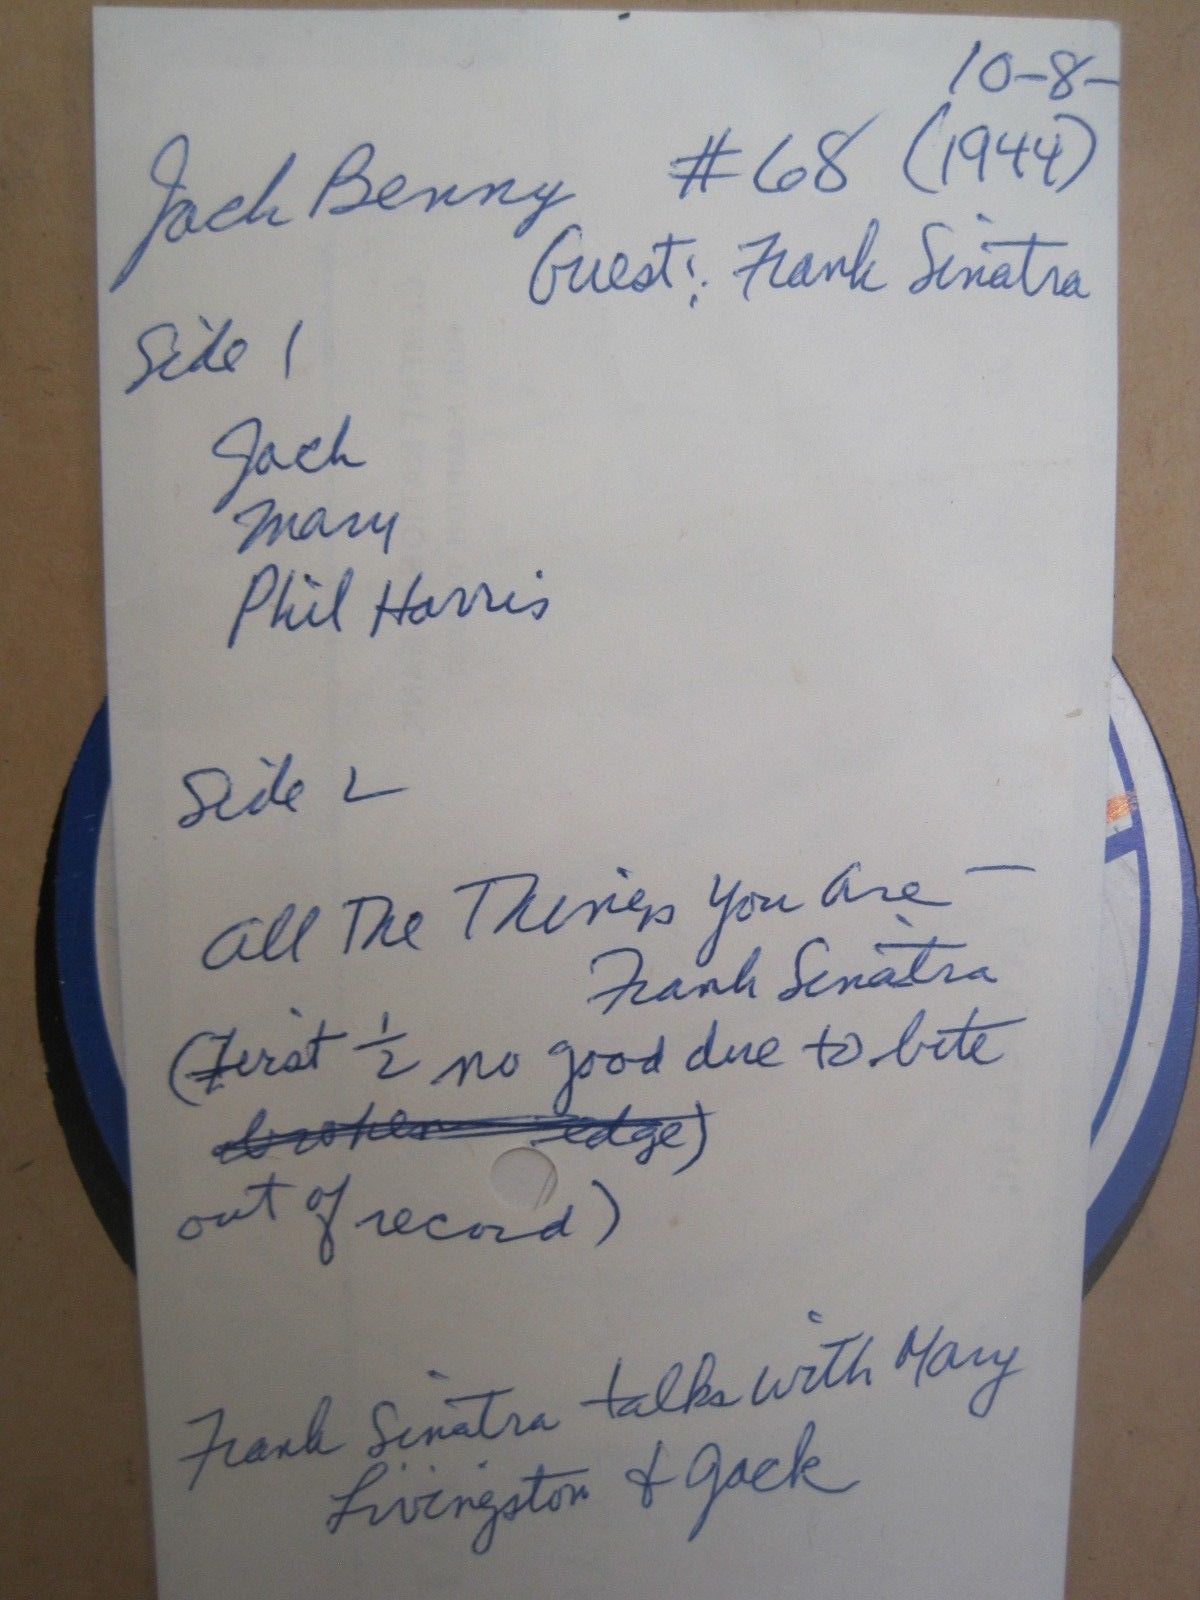 10-8-
Jack Benny #68 (1944)
Guest: Frank Sinatra
Side 1
Jack
Mary
Phil Harris
Side 2
All The Things You Are —
Frank Sinatra
(First 1/2 no good due to bite
broken edge)
out of record)
Frank Sinatra talks with Mary
Livingston & Jack